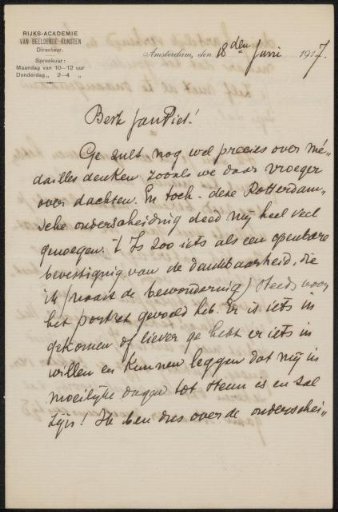 RIJKS-ACADEMIE
VAN BEELDENDE KUNSTEN
Directeur.
Spreekuur:
Maandag van 10–12 uur
Donderdag „ 2–4 „
Amsterdam, den 18den Juni 1917.
Beste Jan Piet!
Ge zult nog wel precies over mé-
dailles denken zooals we daar vroeger
over dachten. En toch - deze Rotterdam-
sche onderscheiding deed mij heel veel
genoegen. 't Is zoo iets als een openbare
bevestiging van de dankbaarheid, die
ik (naast de bewondering) steeds voor
het portret gevoeld heb. Er is iets in
gekomen of liever ge hebt er iets in
willen en kunnen leggen dat mij in
moeilijke dagen tot steun is en zal
zijn! Ik ben dus over de onderschei-